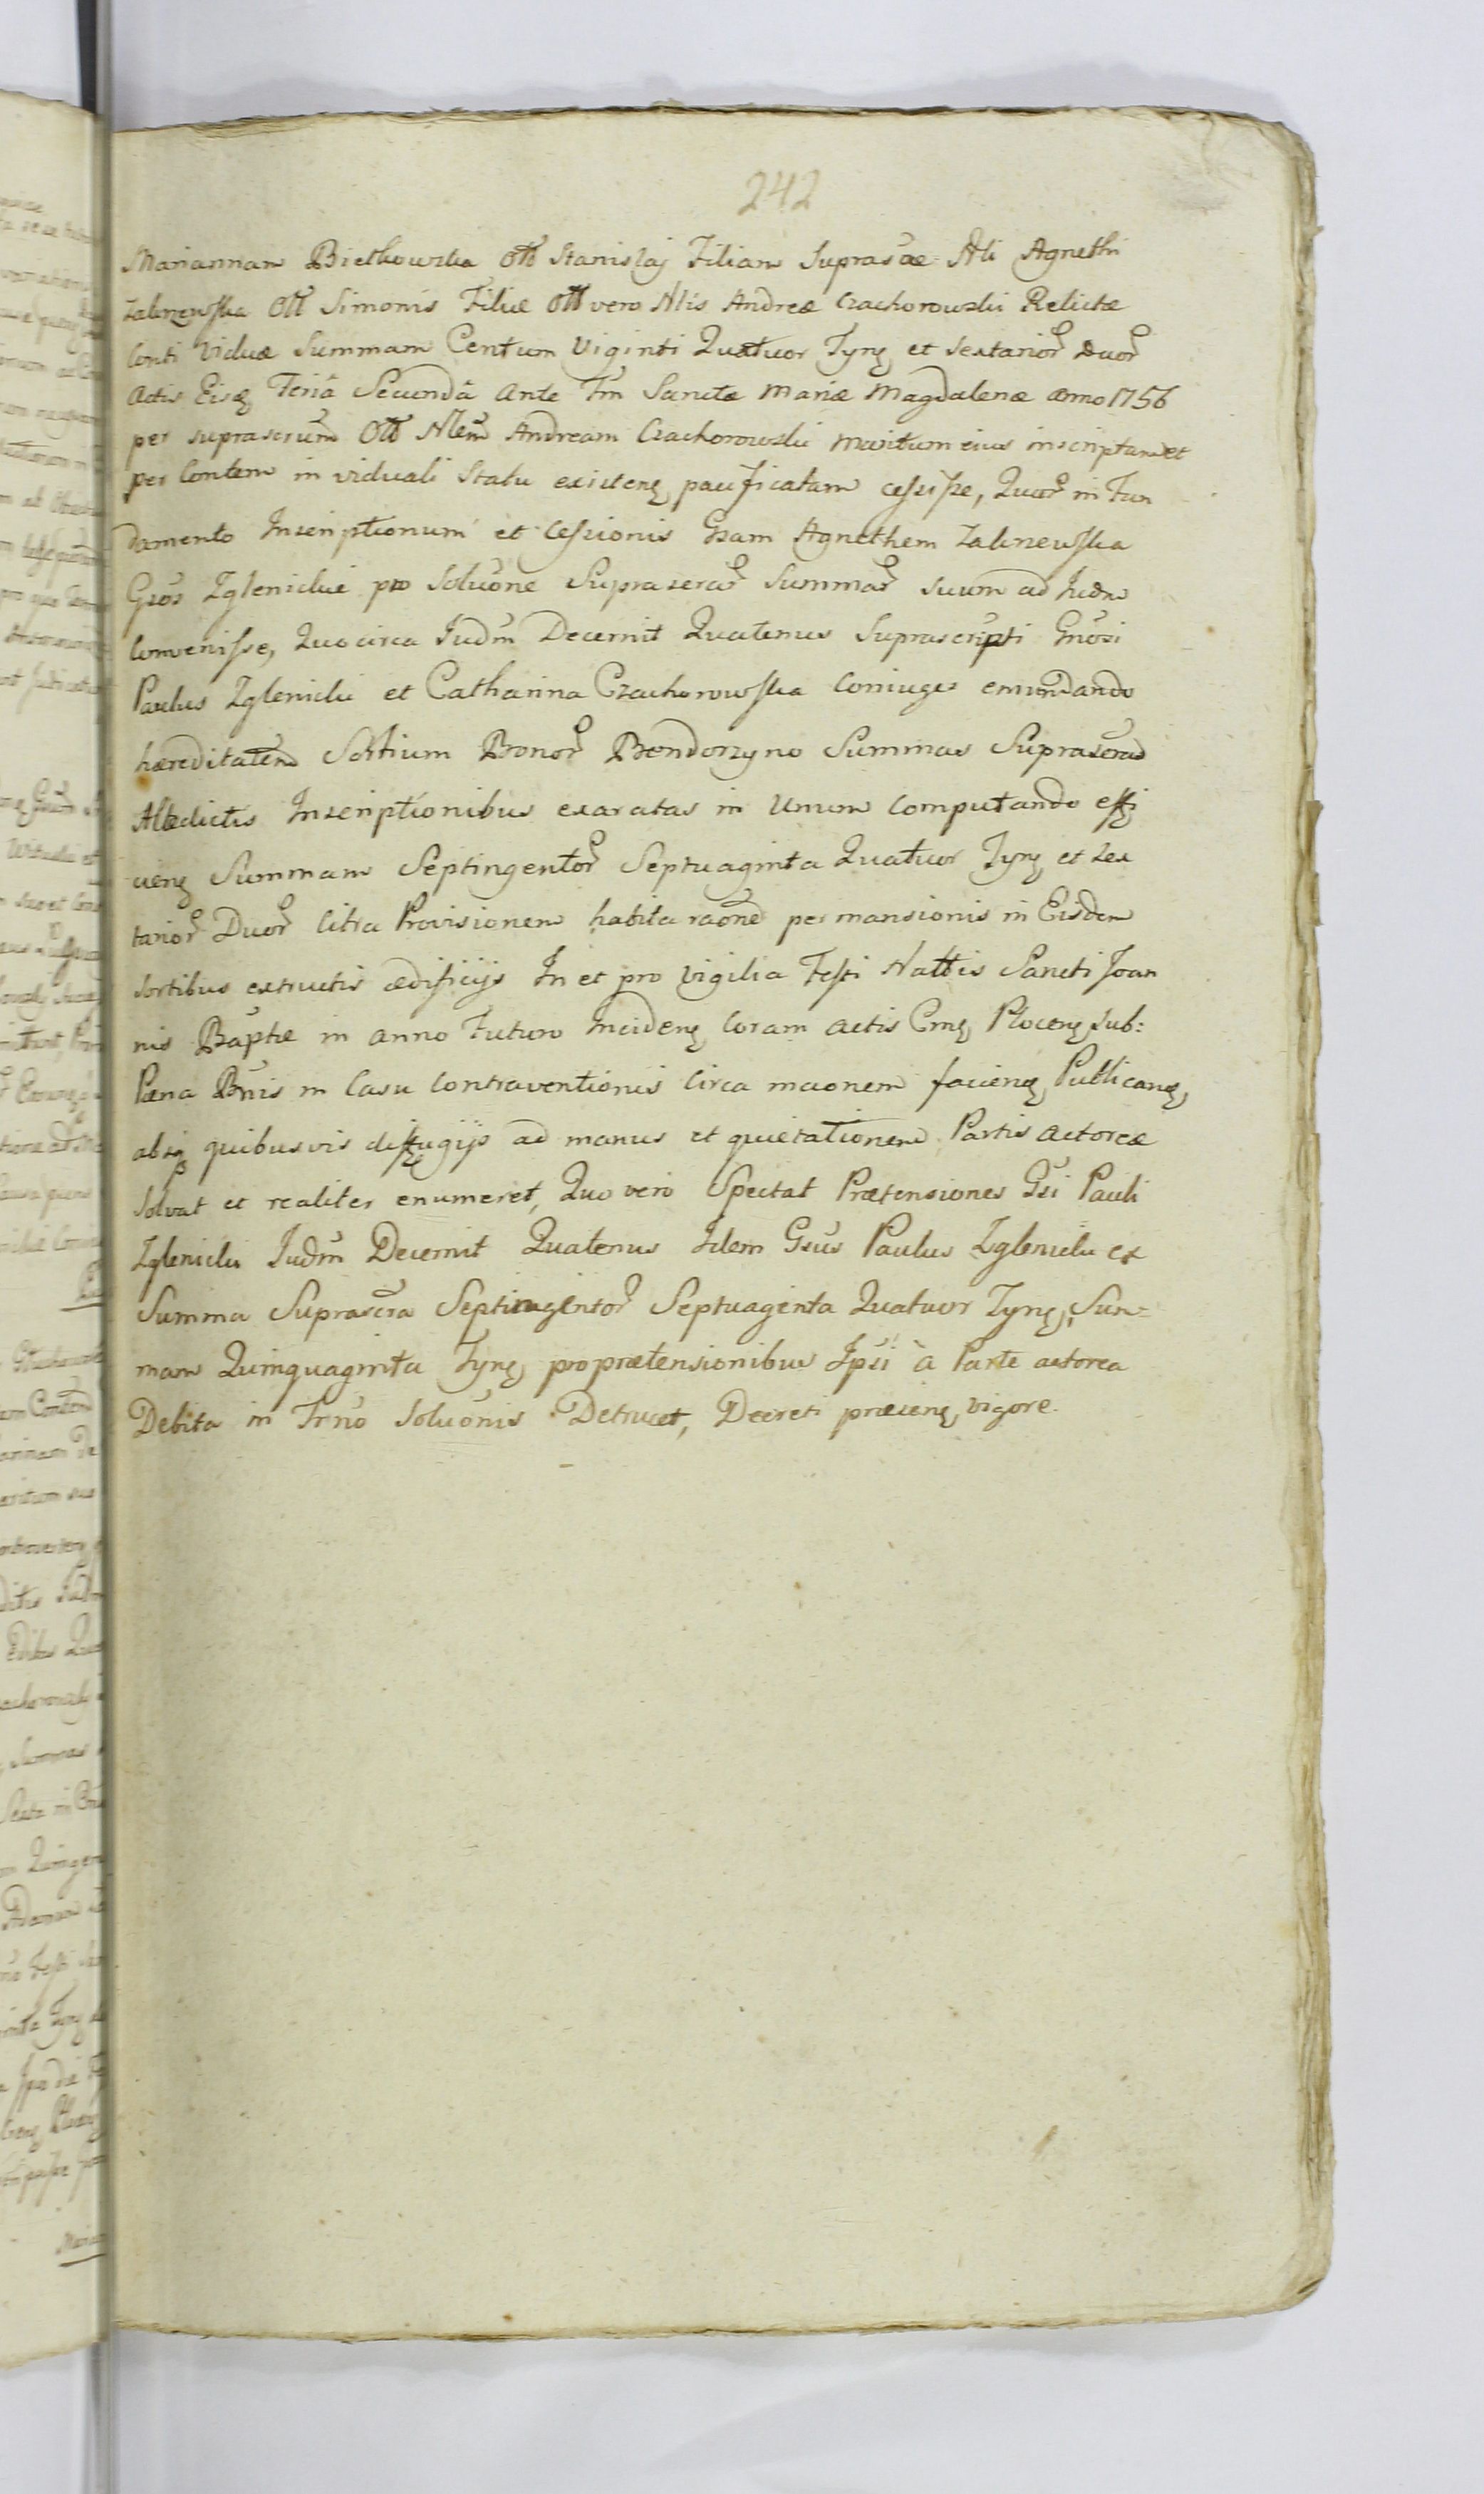 242
Mariannam Bielkowska Olim Stanislaj Filiam Suprasctæ Nli Agnethi
Zalnzewska Olim Simonis Filiæ Olim vero Nlis Andreæ Czachorowski Relictæ
Conti Viduæ Summam Centum Viginti Quatuor Tynf et sextarior duor
Actis Eisd Feriâ Secundâ Ante Fm Sanctæ Mariæ Magdalenæ anno 1756
per suprascrum Olim Nlem Andream Czachorowski Maritum eius inscriptam et
per Contem in viduali Statu existen pacificatam cessisse, Quor in Fun
damento Inscriptionum et Cessionis Gsam Agnethem Zalnzewska
Gsos Zglenickie pro Soluone Suprascrar Summar suum ad Iudm
Convenisse, Quocirca Iudm Decernit Quatenus Suprascripti Gnosi
Paulus Zglenicki et Catharina Czachorowska Coniuges emundando
hæreditatem Sortium Bonor Bendorzyno Summas Suprascras
Inscriptionibus exaratas in Unum Computando effi
cien Summam Septingentor Septuaginta Quatuor Tynf et sex
tarior Duor Citra Provisionem habita raone permansionis in Eisdem
sortibus extructis ædificijs In et pro Vigilia Festi Nattis Sancti Joan
nis Baptæ in anno Futuro Inciden Coram actis Cms Plocen sub:
Pæna Bnis in Casu Contraventionis Circa maonem facien Publican,
absq quibusvis diffugijs ad manus et quietationem Partis actoreæ
Solvat et realiter enumeret, Quo vero Spectat Prætensiones Gsi Pauli
Zglenicki Iudm Decernit Quatenus Idem Gsus Paulus Zglenicki ex
Summa Suprascra Septingentor Septuaginta Quatuor Tynf, Sum=
mam Quinquaginta Tynf pro prætensionibus Ipsi à Parte actorea
Debita in Trno Soluonis Detrucet, Decreti præsen vigore.